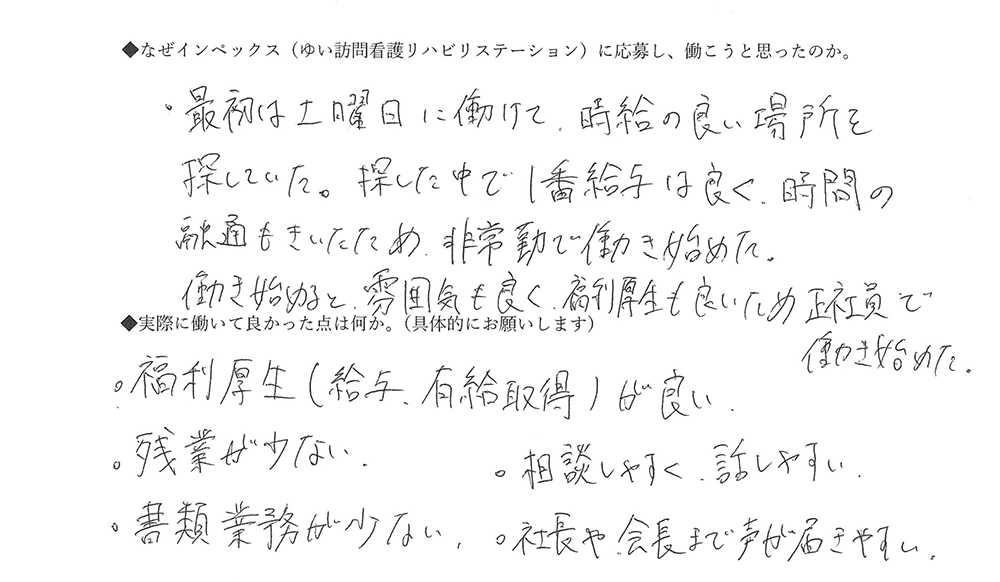 ◆なぜインペックス（ゆい訪問看護リハビリステーション）に応募し、働こうと思ったのか。
・最初は土曜日に働けて、時給の良い場所を
探していた。探した中で1番給与は良く、時間の
融通もきいたため、非常勤で働き始めた。
働き始めると、雰囲気も良く、福利厚生も良いため正社員で
働き始めた。
◆実際に働いて良かった点は何か。（具体的にお願いします）
。福利厚生(給与、有給取得)が良い、
。残業が少ない、
。相談しやすく、話しやすい、
。書類業務が少ない、
。社長や、会長まで声が届きやすい、